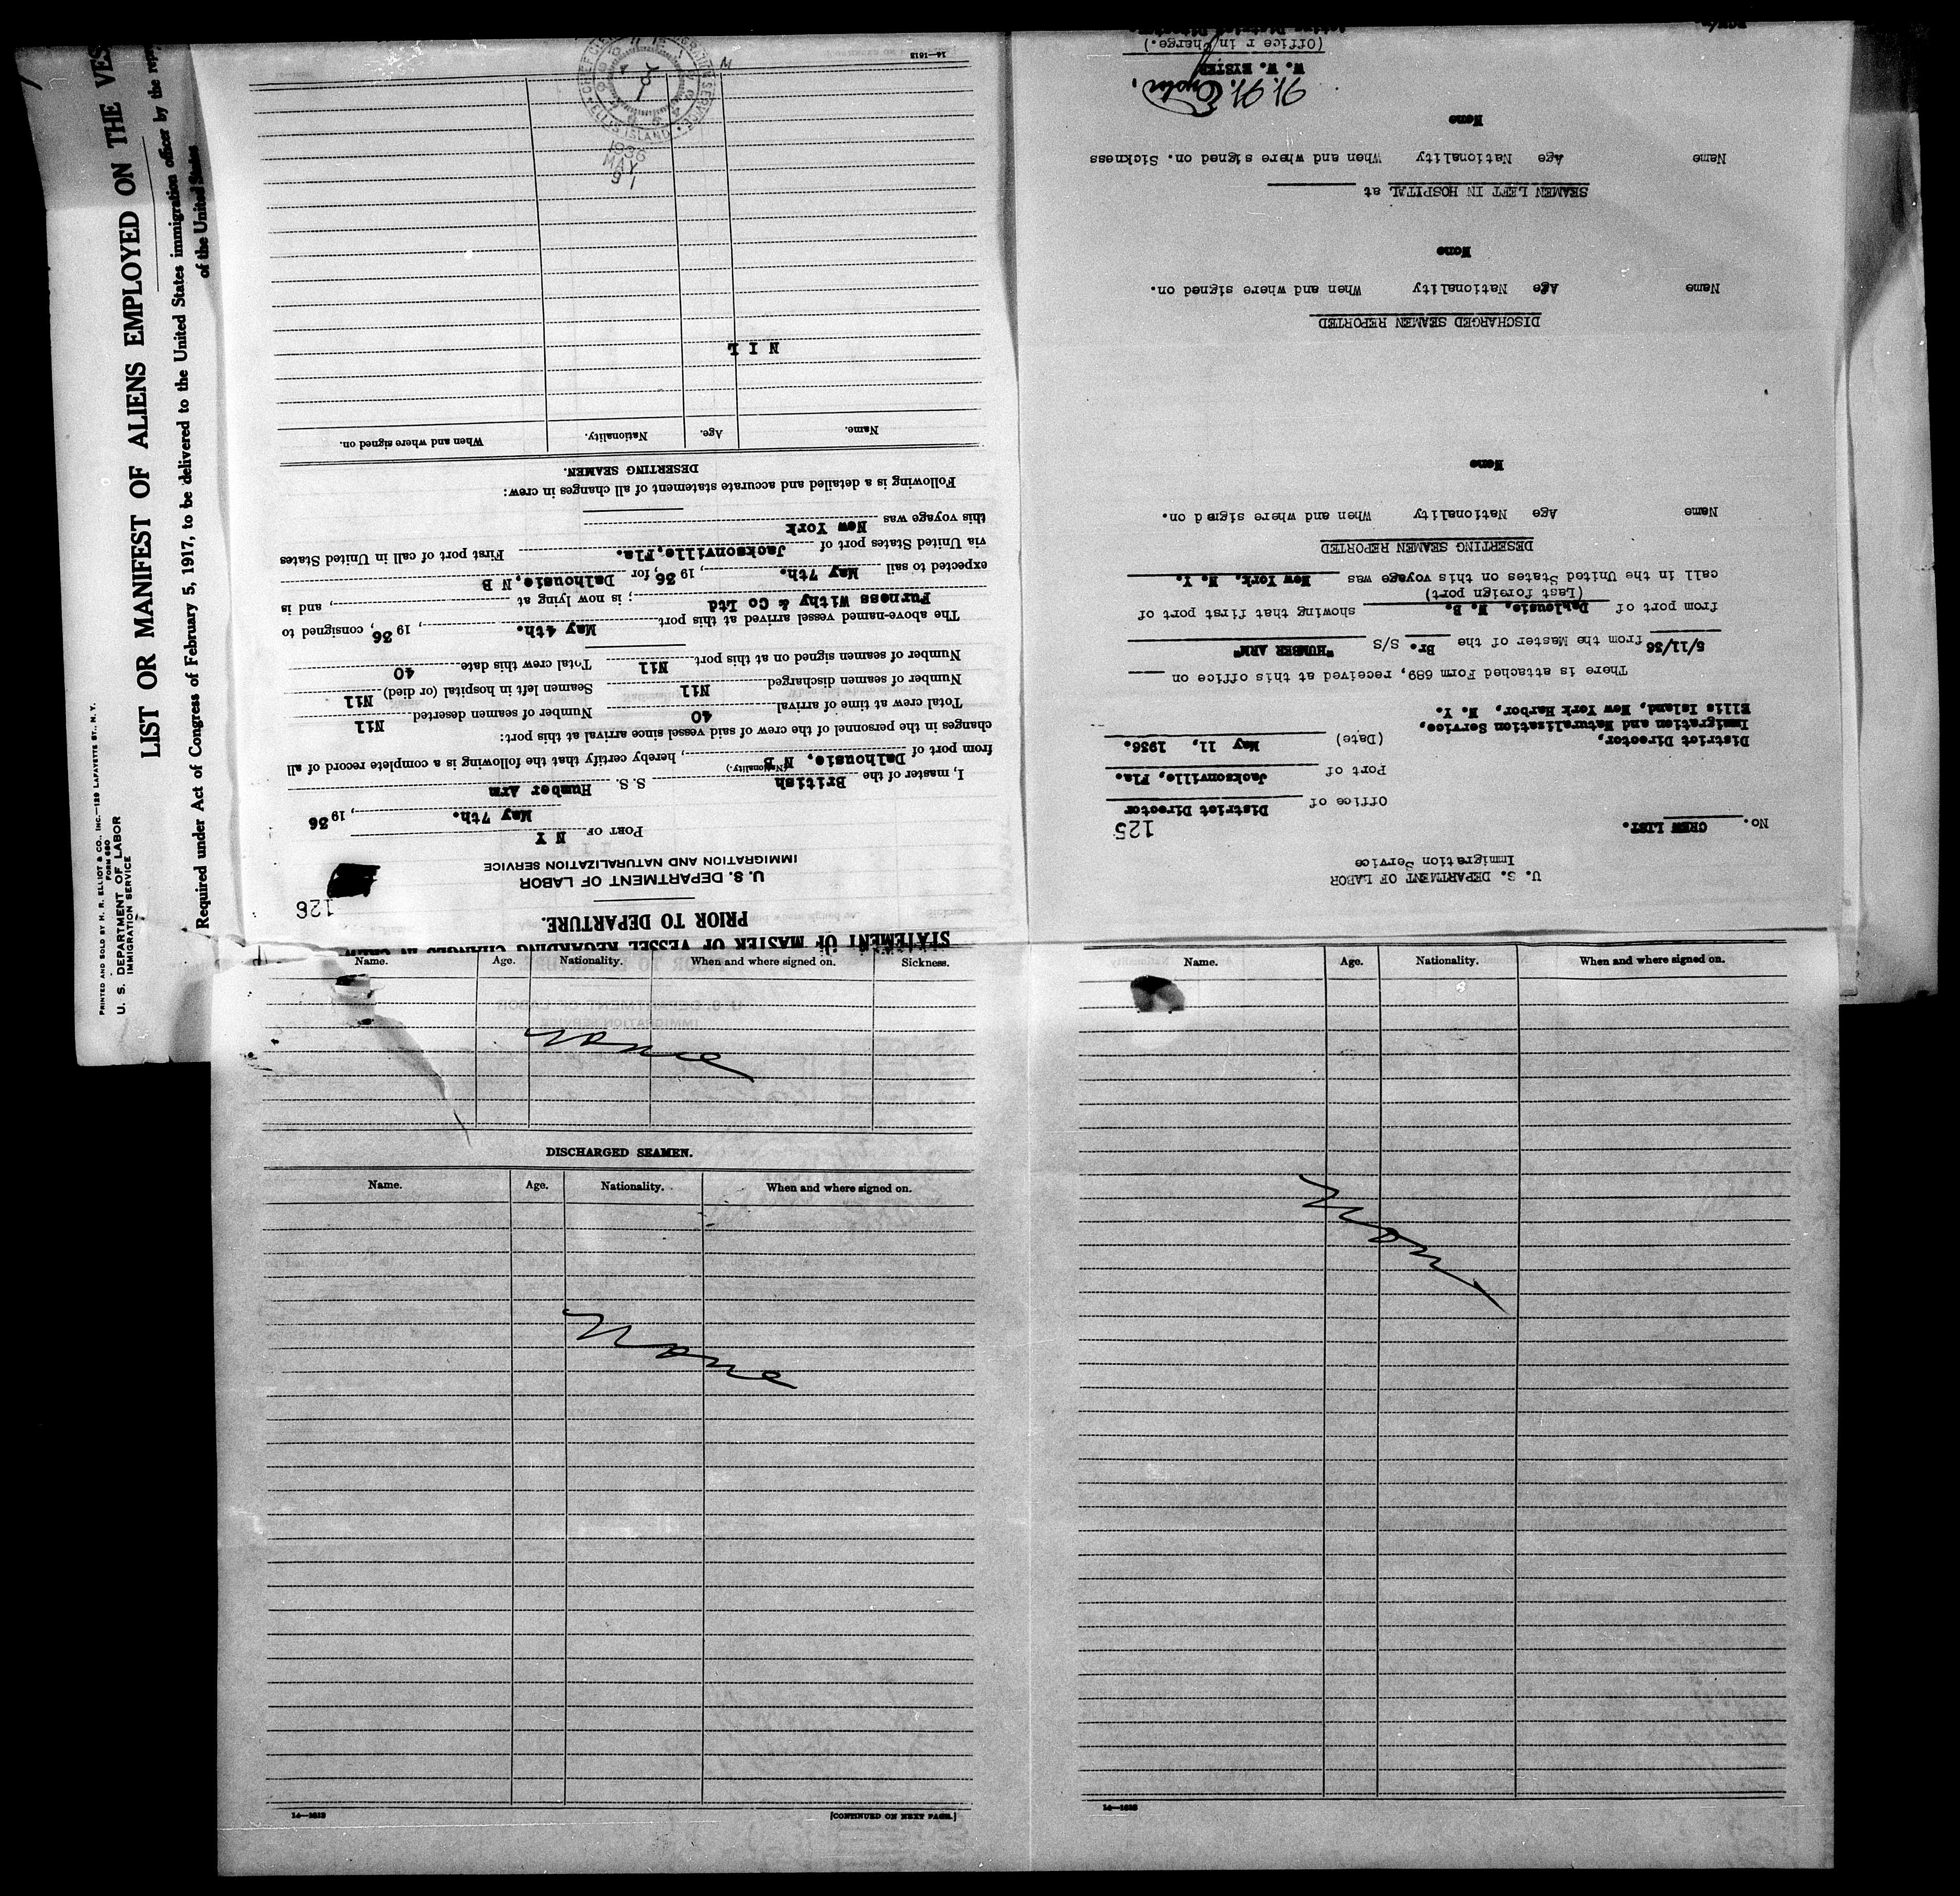 PRINTED AND SOLD BY H. R. ELLIOT & CO., INC.—129 LAFAYETTE ST., N. Y.
FORM 680
U. S. DEPARTMENT OF LABOR
IMMIGRATION SERVICE
LIST OR MANIFEST OF ALIENS EMPLOYED ON THE VES
Required under Act of Congress of February 5, 1917, to be delivered to the United States immigration officer by the
of the United States
126
STATEMENT OF MASTER OF VESSEL REGARDING CHANGES IN CREW
PRIOR TO DEPARTURE.
U. S. DEPARTMENT OF LABOR
IMMIGRATION AND NATURALIZATION SERVICE
PORT OF N Y
May 7th. , 19 36
I, master of the British S. S. Humber Arm
(Nationality.)
from port of Dalhousie, N B , hereby certify that the following is a complete record of all
changes in the personnel of the crew of said vessel since arrival at this port:
Total crew at time of arrival 40 Number of seamen deserted Nil
Number of seamen discharged Nil Seamen left in hospital (or died) Nil
Number of seamen signed on at this port Nil Total crew this date 40
The above-named vessel arrived at this port May 4th. , 19 36 , consigned to
Furness Withy & Co Ltd ; is now lying at , and is
expected to sail May 7th. , 19 36, for Dalhousie, N B
via United States port of Jacksonville, Fla. First port of call in United States
this voyage was New York
Following is a detailed and accurate statement of all changes in crew:
DESERTING SEAMEN.
Name. Age. Nationality. When and where signed on.
N I L
ELLIS ISLAND
1936
MAY
9 1
M
14—1613
U. S. DEPARTMENT OF LABOR
Immigration Service
No. CREW LIST. 125
Office of District Director
Port of Jacksonville, Fla.
(Date) May 11, 1936.
District Director,
Immigration and Naturalization Service,
Ellis Island, New York Harbor, N. Y.
There is attached Form 689, received at this office on
5/11/36 from the Master of the Br. S/S "HUMBER ARM"
from port of Dalhousie, N. B. showing that first port of
(Last foreign port)
call in the United States on this voyage was New York, N. Y.
DESERTING SEAMEN REPORTED
Name Age Nationality When and where signed on.
None
DISCHARGED SEAMEN REPORTED
Name Age Nationality When and where signed on.
None
SEAMEN LEFT IN HOSPITAL at
Name Age Nationality When and where signed on. Sickness
None
W. W. Eyster.
W. W. EYSTER
(Officer in Charge.)
Name. Age. Nationality. When and where signed on. Sickness.
None
DISCHARGED SEAMEN.
Name. Age. Nationality. When and where signed on.
None
14—1613 [CONTINUED ON NEXT PAGE.]
Name. Age. Nationality. When and where signed on.
None
14—1613